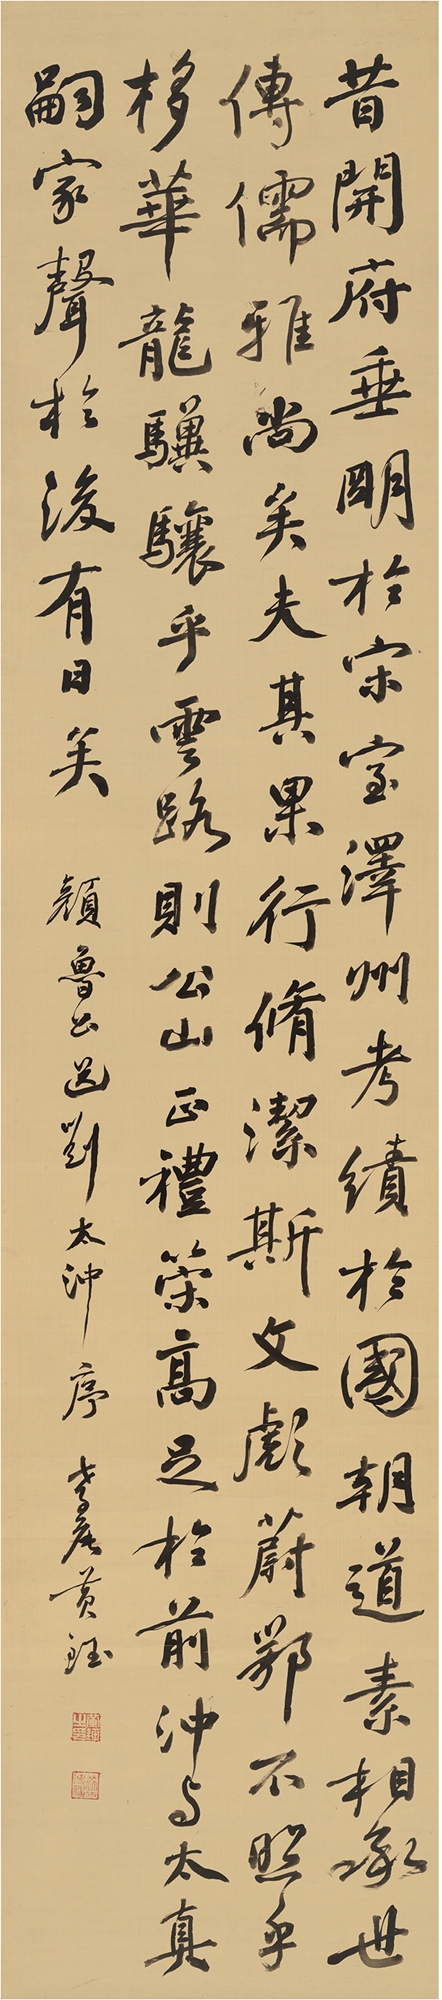 昔開府垂明於宋室澤州考績於國朝道素相承世
傳儒雅尚矣夫其果行脩潔斯文彪蔚鄂不照乎
移華龍驥驤乎雲路則公山正禮策高足於前沖与太真
嗣家聲於後有日矣
顏魯公送劉太沖序
黃鈺